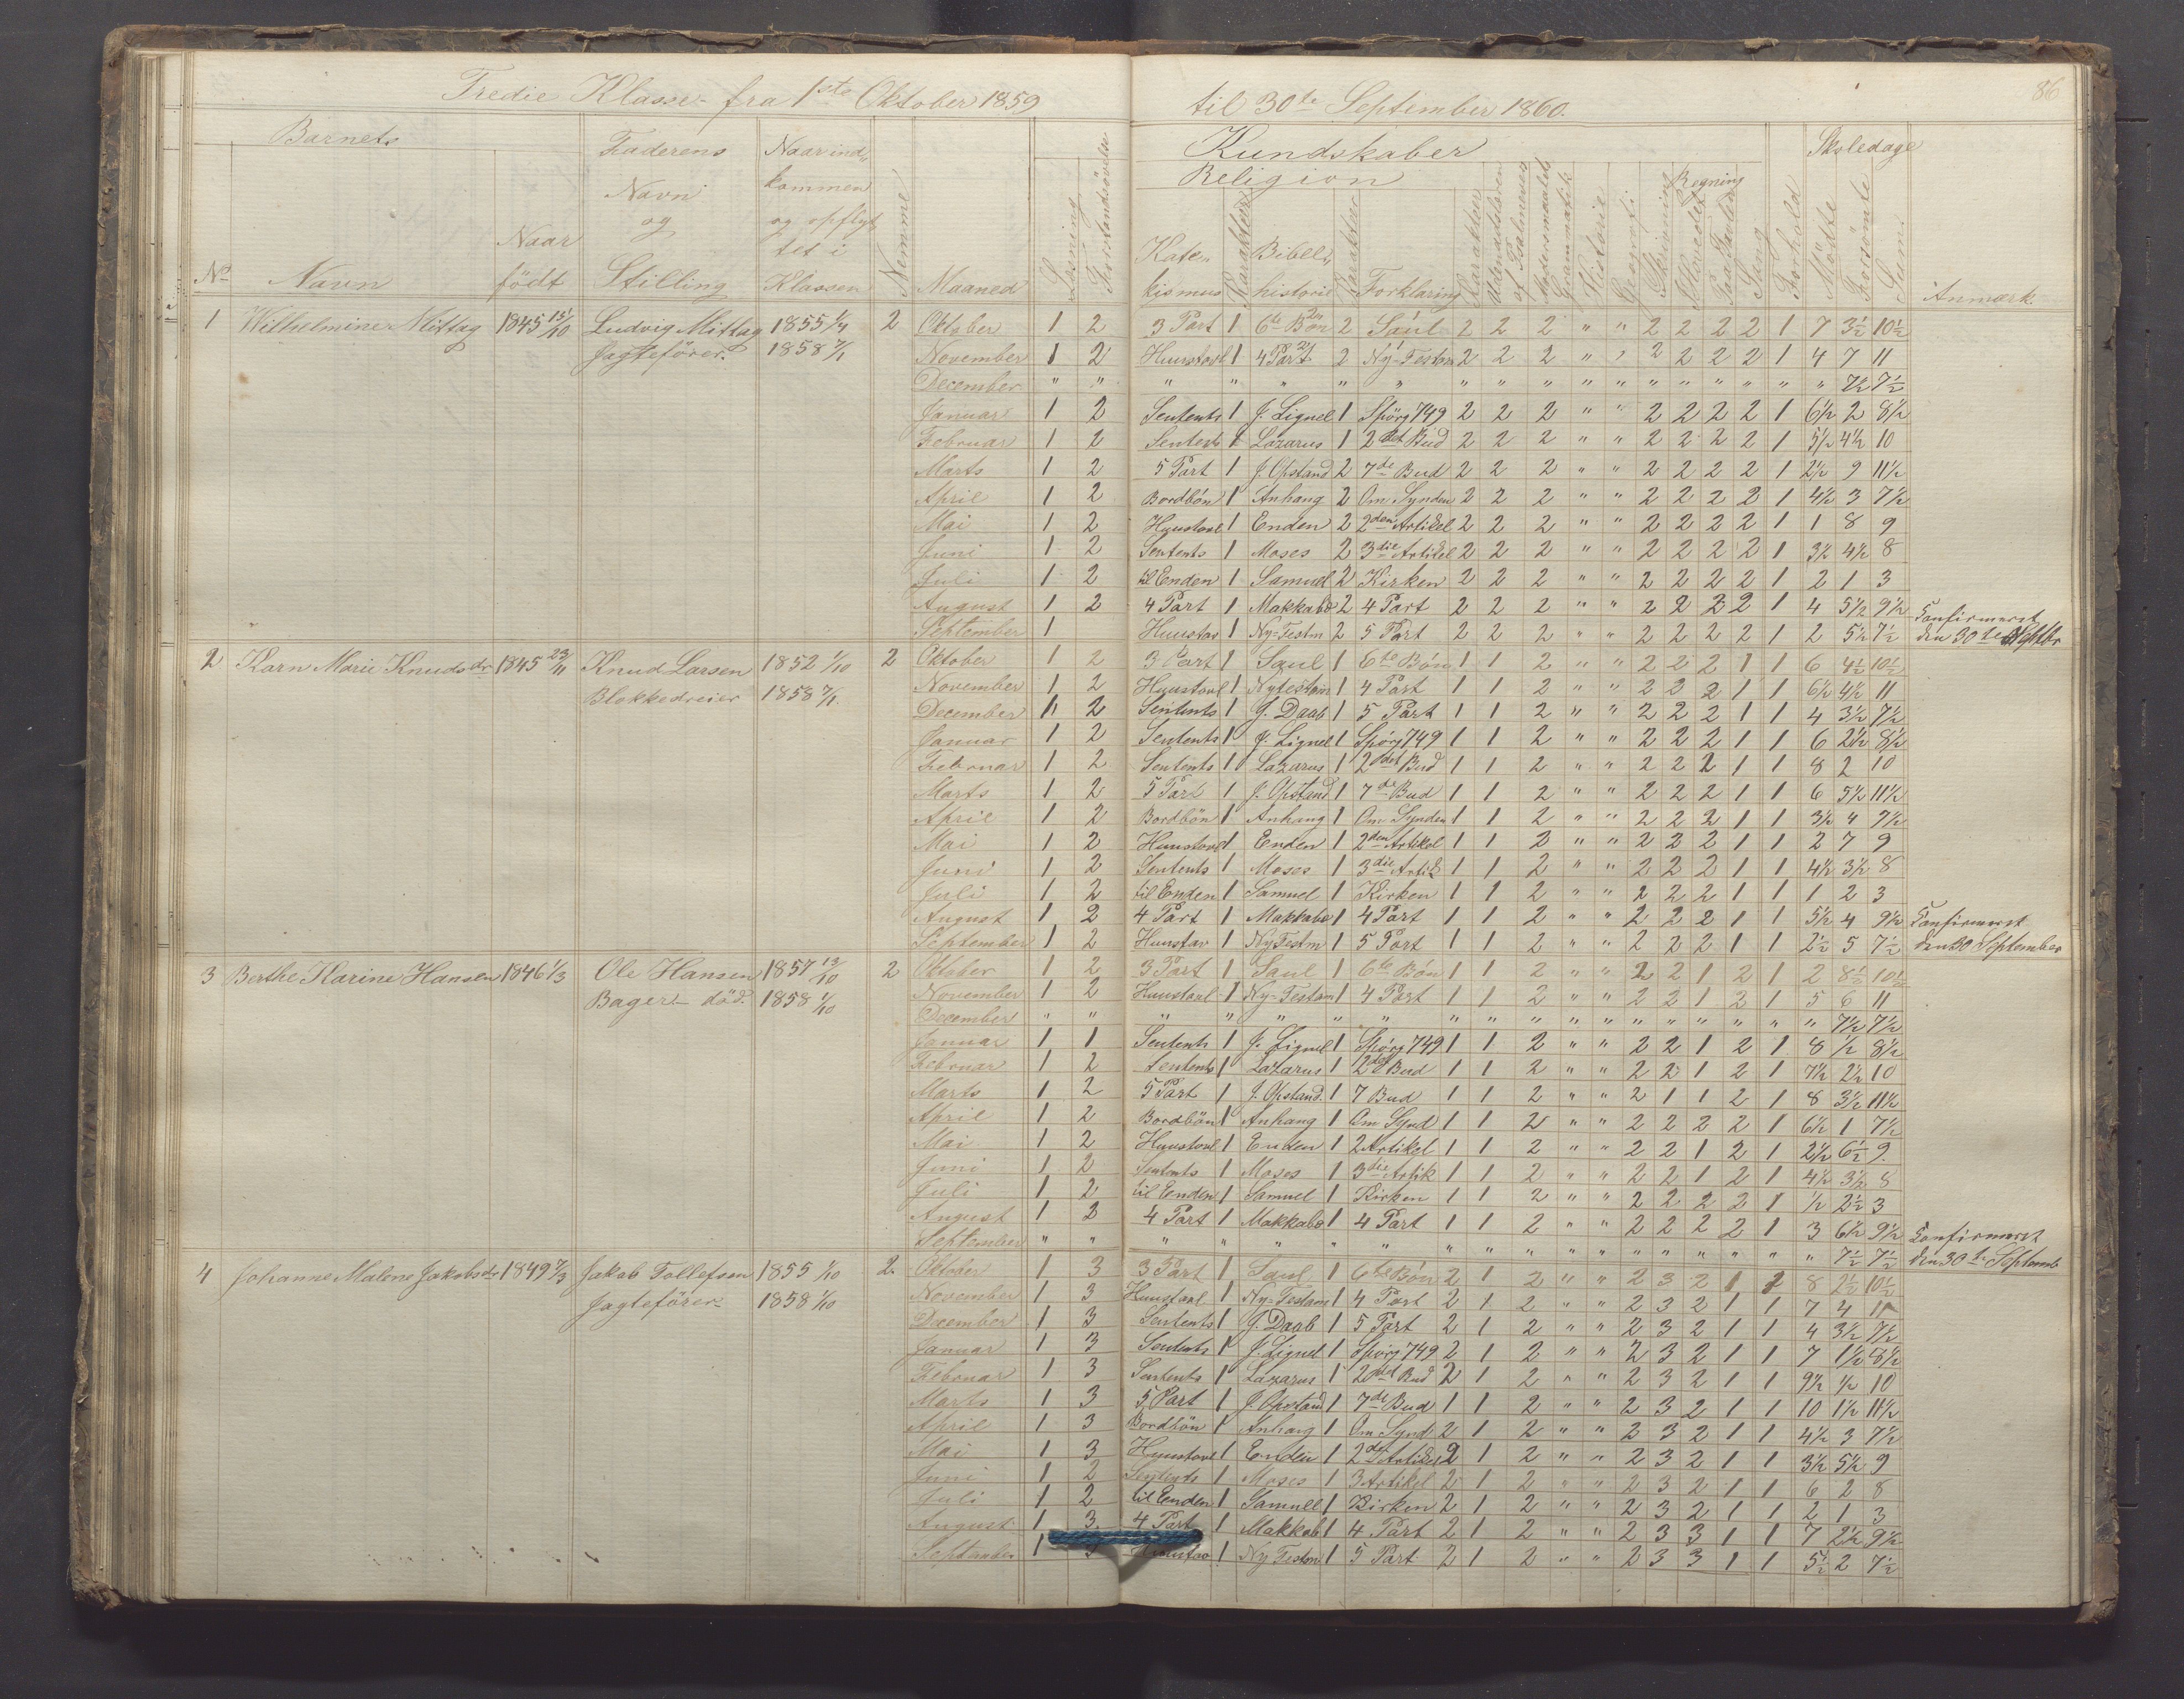 Tredie Klasse fra 1ste Oktober 1859 til 30te September 1860. 86
Barnets Faderens Naar ind- Kundskaber Skoledage
Navn kommen Religion Regning
og og opflyt
Naar tet i Kate- Bibel-
No Navn födt Stilling Klassen Nemme Maaned Læsning Forstandsövelse kismus Karakter historie Karakter Forklaring Karakter Udenadslæren af Psalmevers Modersmaalets Grammatik Historie Geografi Skrivning Hovedet Paa Tavlen Sang Forhold Mödte Forsömte Sum Anmærk.
1 Wilhelmine Mittag 1845 15/10 Ludvig Mittag 1855 1/4 2 Oktober 1 2 3 Part 1 6te Bön 2 Saul 2 2 2 " " 2 2 2 2 1 7 3½ 10½
Jagteförer. 1858 7/1 November 1 2 Huustavl 1 4 Part 2 Ny-Testam 2 2 2 " " 2 2 2 2 1 4 7 11
December " " " " " " " " " " " " " " " " " " 7½ 7½
Januar 1 2 Sentents 1 J. Lignel 1 Spörg 749 2 2 2 " " 2 2 2 2 1 6½ 2 8½
Februar 1 2 Sentents 1 Lazarus 1 2det Bud 2 2 2 " " 2 2 2 2 1 5½ 4½ 10
Marts 1 2 5 Part 1 J. Opstand 2 7de Bud 2 2 2 " " 2 2 2 2 1 2½ 9 11½
April 1 2 Bordbön 1 Anhang 2 Om Synden 2 2 2 " " 2 2 2 2 1 4½ 3 7½
Mai 1 2 Huustavl 1 Enden 2 2den Artikel 2 2 2 " " 2 2 2 2 1 1 8 9
Juni 1 2 Sentents 1 Moses 2 3die Artikel 2 2 2 " " 2 2 2 2 1 3½ 4½ 8
Juli 1 2 til Enden 1 Samuel 2 Kirken 2 2 2 " " 2 2 2 2 1 2 1 3
August 1 2 4 Part 1 Makkabæ 2 4 Part 2 2 2 " " 2 2 2 2 1 4 5½ 9½ Confirmeret
September 1 Huustav 1 Ny-Testm 2 5 Part 2 2 2 " " 2 2 2 2 1 2 5½ 7½ den 30te Septbr
2 Karn Marie Knudsdr 1845 23/11 Knud Larsen 1852 1/10 2 Oktober 1 2 3 Part 1 Saul 1 6te Bön 1 1 2 " " 2 2 2 1 1 6 4½ 10½
Blokkedreier 1858 7/1. November 1 2 Huustavl 1 Nytestam 1 4 Part 1 1 2 " " 2 2 2 1 1 6½ 4½ 11
December 1 2 Sentents 1 J. Daab 1 5 Part 1 1 2 " " 2 2 2 1 1 4 3½ 7½
Januar 1 2 Sentents 1 J. Lignel 1 Spörg 749 1 1 2 " " 2 2 2 1 1 6 2½ 8½
Februar 1 2 Sentents 1 Lazarus 1 2det Bud 1 1 2 " " 2 2 2 1 1 8 2 10
Marts 1 2 5 Part 1 J. Opstand 1 7de Bud 1 1 2 " " 2 2 2 1 1 6 5½ 11½
April 1 2 Bordbön 1 Anhang 1 Om Synden 1 1 2 " " 2 2 2 1 1 3½ 4 7½
Mai 1 2 Huustavl 1 Enden 1 2den Artikel 1 1 2 " " 2 2 2 1 1 2 7 9
Juni 1 2 Sentents 1 Moses 1 3die Artik 1 1 2 " " 2 2 2 1 1 4½ 3½ 8
Juli 1 2 til Enden 1 Samuel 1 Kirken 1 1 2 " " 2 2 2 1 1 1 2 3
August 1 2 4 Part 1 Makkabæ 1 4 Part 1 1 2 " " 2 2 2 1 1 5½ 4 9½ Confirmeret
September 1 2 Huustav 1 Ny Testm 1 5 Part 1 1 2 " " 2 2 2 1 1 2½ 5 7½ den 30 September
3 Berthe Karine Hansen 1846 1/3 Ole Hansen 1857 13/10 2 Oktober 1 2 3 Part 1 Saul 1 6te Bön 1 1 2 " " 2 2 1 2 1 2 8½ 10½
Bager död. 1858 1/10 November 1 2 Huustavl 1 Ny-Testam 1 4 Part 1 1 2 " " 2 2 1 2 1 5 6 11
December " " " " " " " " " " " " " " " " " " 7½ 7½
Januar 1 1 Sentents 1 J. Lignel 1 Spörg 749 1 1 2 " " 2 2 1 2 1 8 ½ 8½
Februar 1 2 Sentents 1 Lazarus 1 2det Bud 1 1 2 " " 2 2 1 2 1 7½ 2½ 10
Marts 1 2 5 Part 1 J. Opstand. 1 7 Bud 1 1 2 " " 2 1 1 2 1 8 3½ 11½
April 1 2 Bordbön 1 Anhang 1 Om Synd 1 1 2 " " 2 2 2 2 1 6½ 1 7½
Mai 1 2 Huustavl 1 Enden 1 2 Artikel 1 1 2 " " 2 2 1 2 1 2½ 6½ 9.
Juni 1 2 Sentents 1 Moses 1 3die Artik 1 1 2 " " 2 2 1 2 1 4½ 3½ 8
Juli 1 2 til Enden 1 Samuel 1 Kirken 1 1 2 " " 2 2 2 2 1 ½ 2½ 3
August 1 2 4 Part 1 Makkabæ 1 4 Part 1 1 2 " " 2 2 2 2 1 3 6½ 9½ Confirmeret
September " " " " " " " " " " " " " " " " " " 7½ 7½ den 30te Septemb
4 Johanne Malene Jakobsdr 1849 7/3 Jakob Tollefsen 1855 1/10 2. Oktober 1 3 3 Part 1 Saul 1 6te Bön 2 1 2 " " 2 3 2 1 1 8 2½ 10½
Jagteförer 1858 1/10 November 1 3 Huustavl 1 Ny-Testam 1 4 Part 2 1 2 " " 2 3 2 1 1 7 4 11
December 1 3 Sentents 1 J. Daab 1 5 Part 2 1 2 " " 2 3 2 1 1 4 3½ 7½
Januar 1 3 Sentents 1 J. Lignel 1 Spörg 749 2 1 2 " " 2 3 2 1 1 7 1½ 8½
Februar 1 3 Sentents 1 Lazarus 1 2det Bud 2 1 2 " " 2 3 2 1 1 9½ ½ 10
Marts 1 3 5 Part 1 J. Opstand 1 7de Bud 1 1 2 " " 2 3 2 1 1 10 1½ 11½
April 1 3 Bordbön 1 Anhang 1 Om Synd 2 1 2 " " 2 3 2 1 1 4½ 3 7½
Mai 1 3 Huustavl 1 Enden 1 2d Artikel 2 1 2 " " 2 3 2 1 1 3½ 5½ 9
Juni 1 2 Sentents 1 Moses 1 3 Artikel 2 1 2 " " 2 3 2 1 1 6 2 8
Juli 1 2 til Enden 1 Samuel 1 Kirken 2 1 2 " " 2 3 2 1 1 2 1 3
August 1 3. 4 Part 1 Makkab 1 4 Part 2 1 2 " " 2 3 3 1 1 7 2½ 9½
September 1 Huustav 1 Ny Testm 1 5 Part 2 1 2 " " 2 3 3 1 1 5½ 2 7½